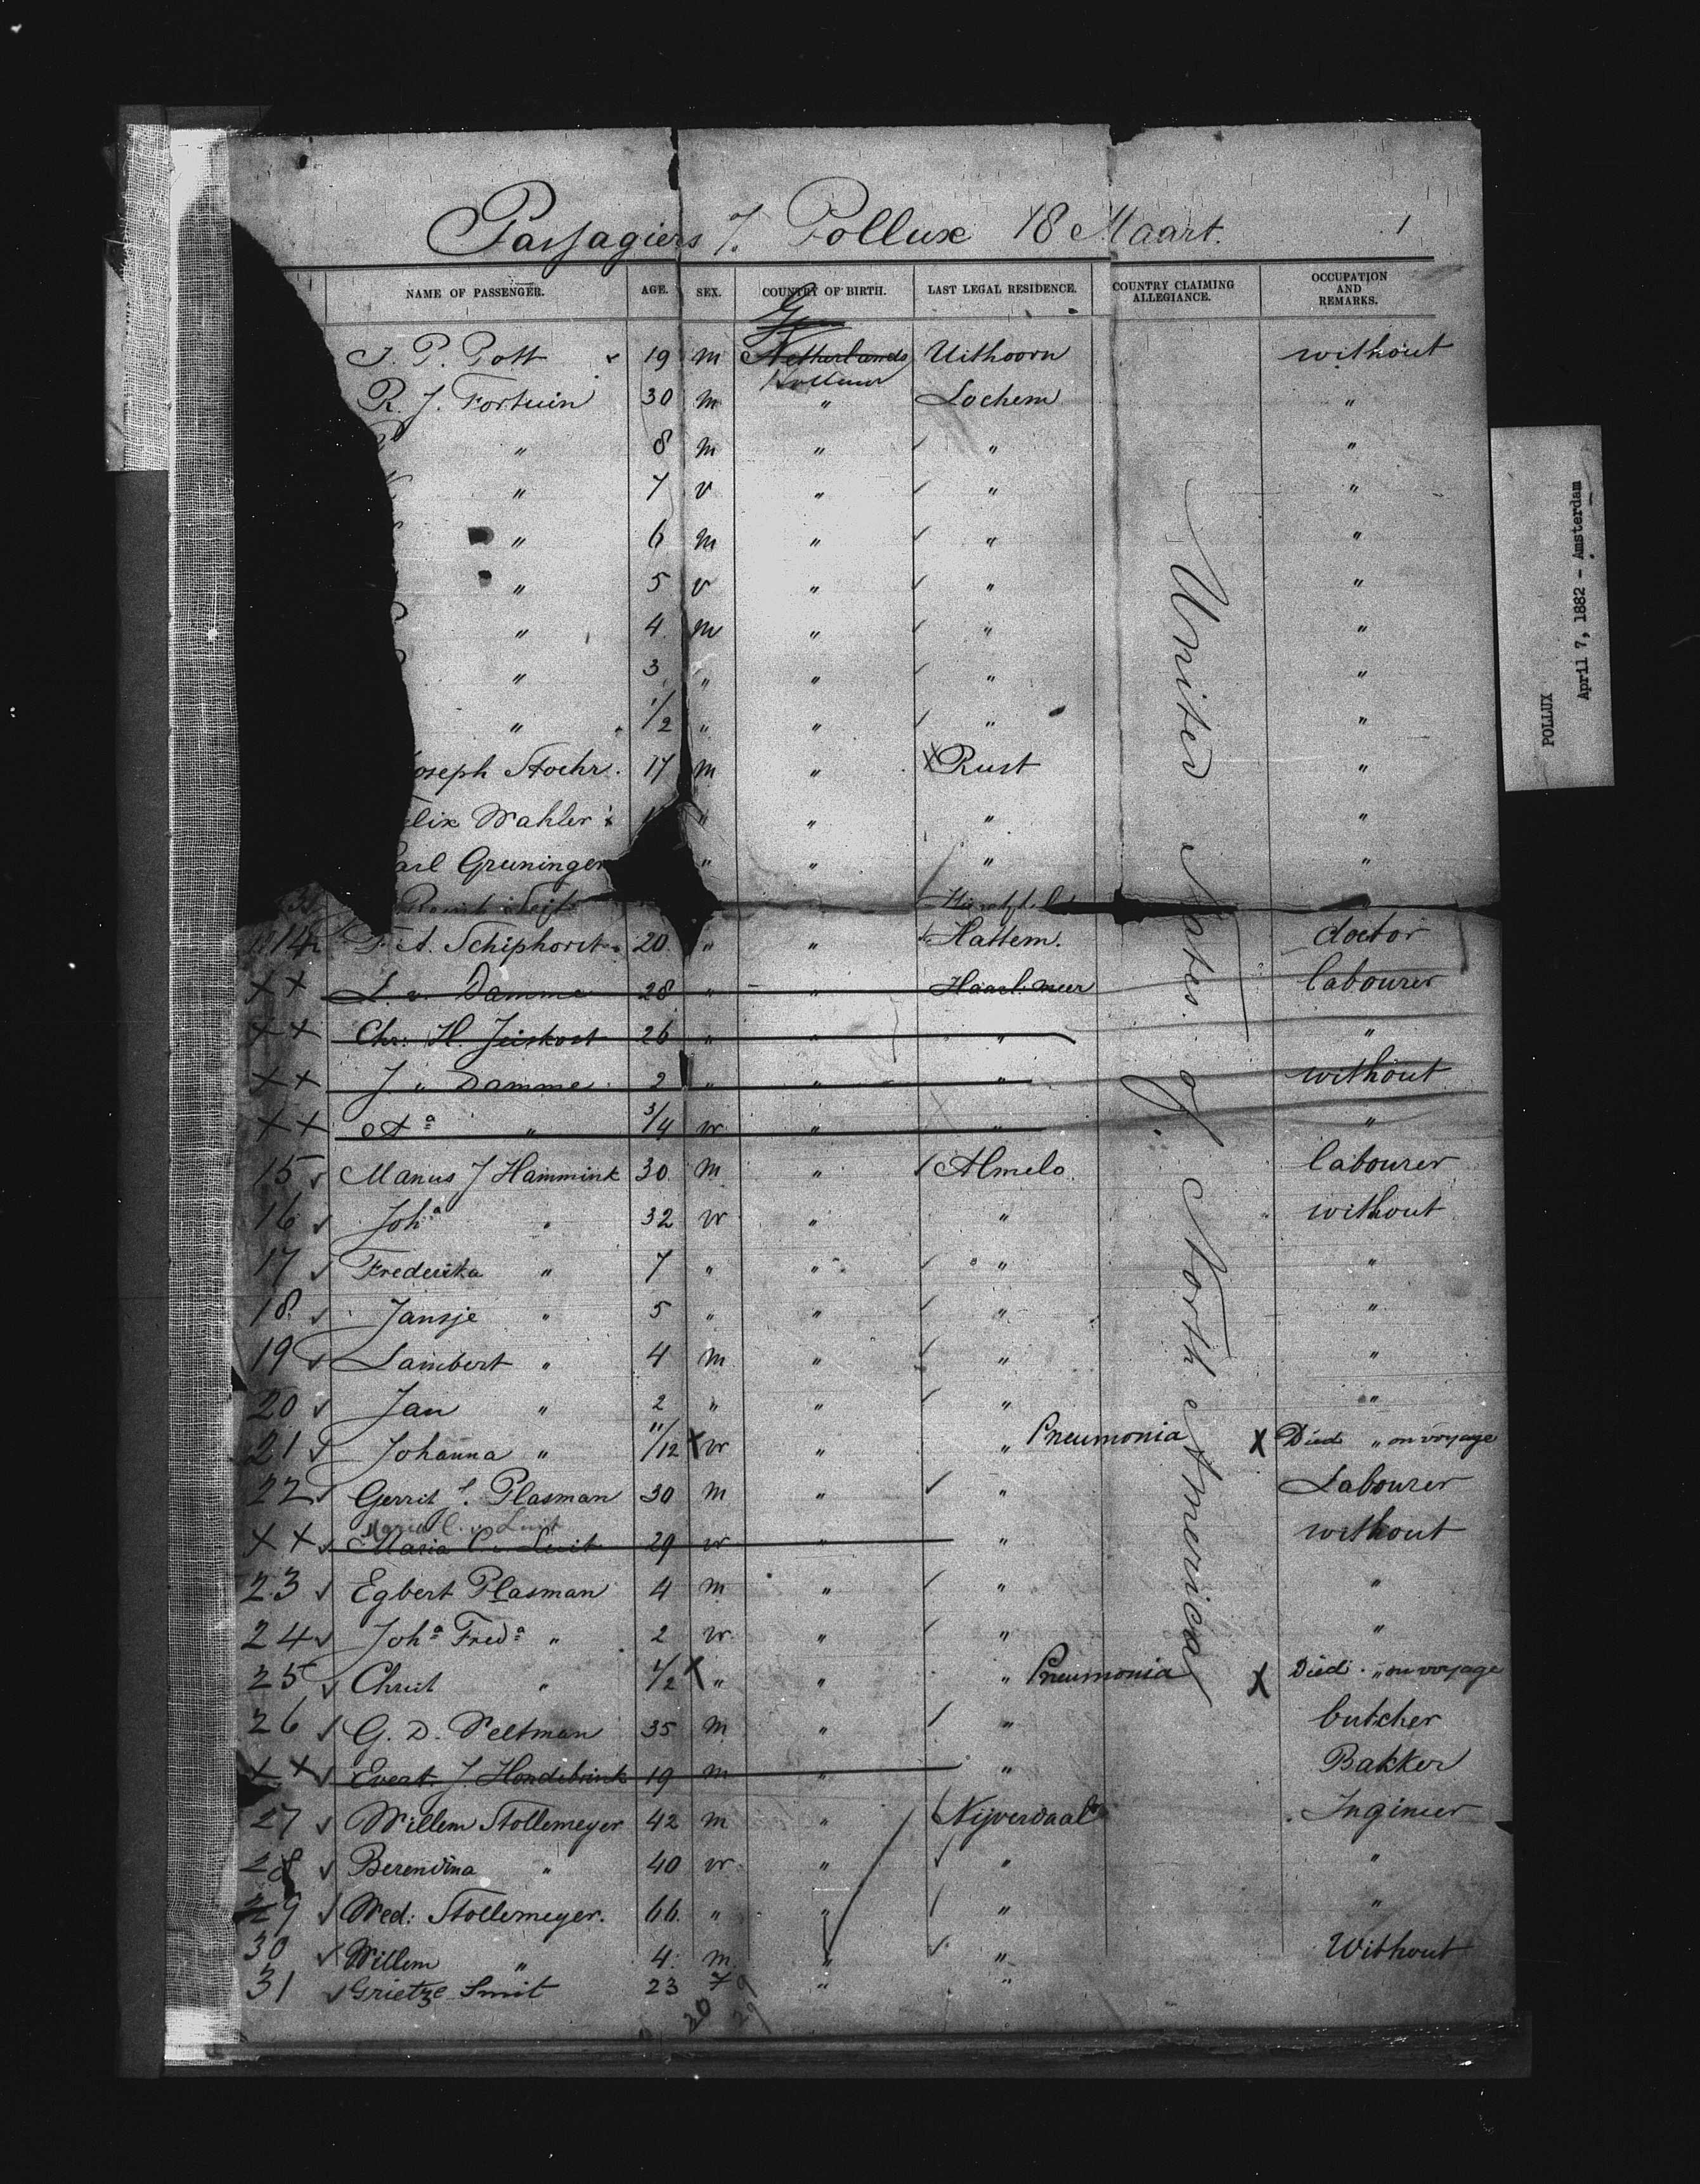 Passagiers p. Pollux 18 Maart. 1
NAME OF PASSENGER. AGE. SEX. COUNTRY OF BIRTH. LAST LEGAL RESIDENCE. COUNTRY CLAIMING ALLEGIANCE. OCCUPATION AND REMARKS.
J. P. Pott 19 m Netherlands Uithoorn without
Holland
R. J. Fortuin 30 m " Lochem "
" 8 m " " "
" 7 v " " "
" 6 m " " "
" 5 v " " "
" 4 m " " "
" 3 " " " "
" 1/2 " " " "
oseph Stoehr. 17 m " X Rust "
elix Wahler " " " "
arl Gruninger " " " "
14 F. A. Schiphorst 20 " " Hattem. doctor
XX L. v. Damme 28 " " Haarl. meer labourer
XX Chr. H. Jeiskoot 26 " " " "
XX J. " Damme 2 " " " without
XX Aª " 3/4 vr " " "
15 Manus J Hammink 30 m " Almelo labourer
16 Johª " 32 vr " " without
17 Frederika " 7 " " " "
18 Jansje " 5 " " " "
19 Lambert " 4 m " " "
20 Jan " 2 " " " "
21 Johanna " 11/12 X vr " " Pneumonia X Died " on voyage
22 Gerrit J. Plasman 30 m " " Labourer
Maria C. v. Luit
XX Maria C. v. Luit 29 vr " " without
23 Egbert Plasman 4 m " " "
24 Johª Fredª " 2 vr " " "
25 Christ " 1/2 X " " " Pneumonia X Died " on voyage
26 G. D. Veltman 35 m " " butcher
XX Evert J. Hondebrink 19 m " " Bakker
27 Willem Stollemeyer 42 m " Nijverdaal Ingineer
28 Berendina " 40 vr " " "
29 Wed: Stollemeyer. 66 " " " "
30 Willem " 4 m " " Without
31 Grietze Smit 23 F " "
20 29
United States of North America
POLLUX
April 7, 1882 - Amsterdam